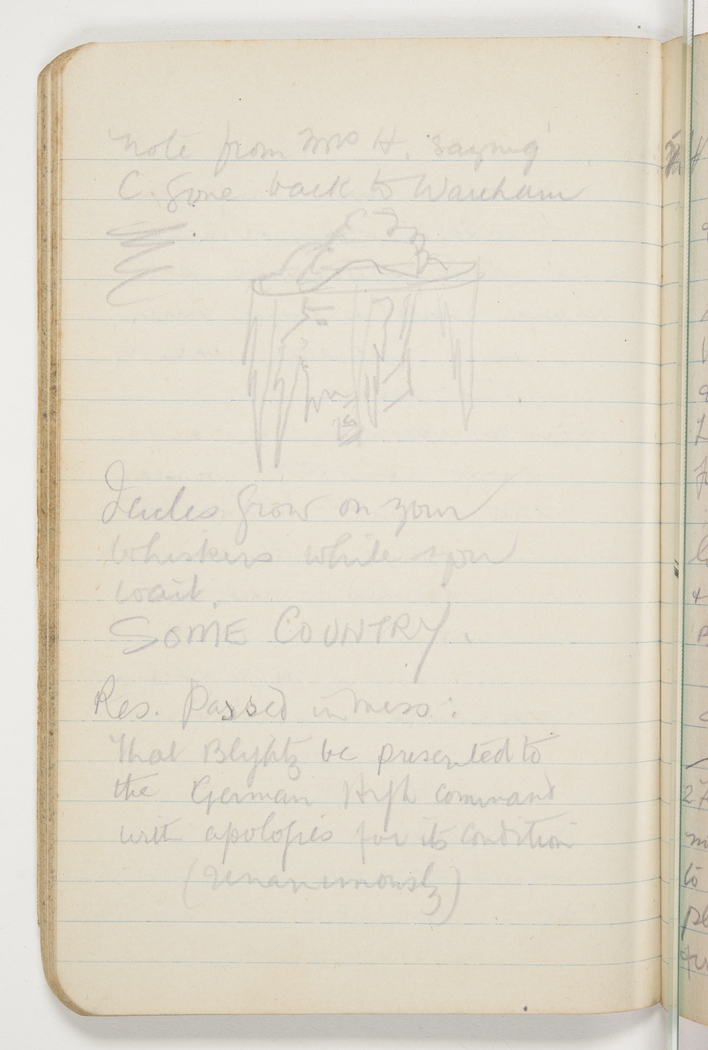 note from Mrs H. saying
C. gone back to Wareham
Icicles grow on your
whiskers while you
wait.
SOME COUNTRY.
Res. Passed in mess:
That Blighty be presented to
the German High command
with apologies for its condition
(unanimously)